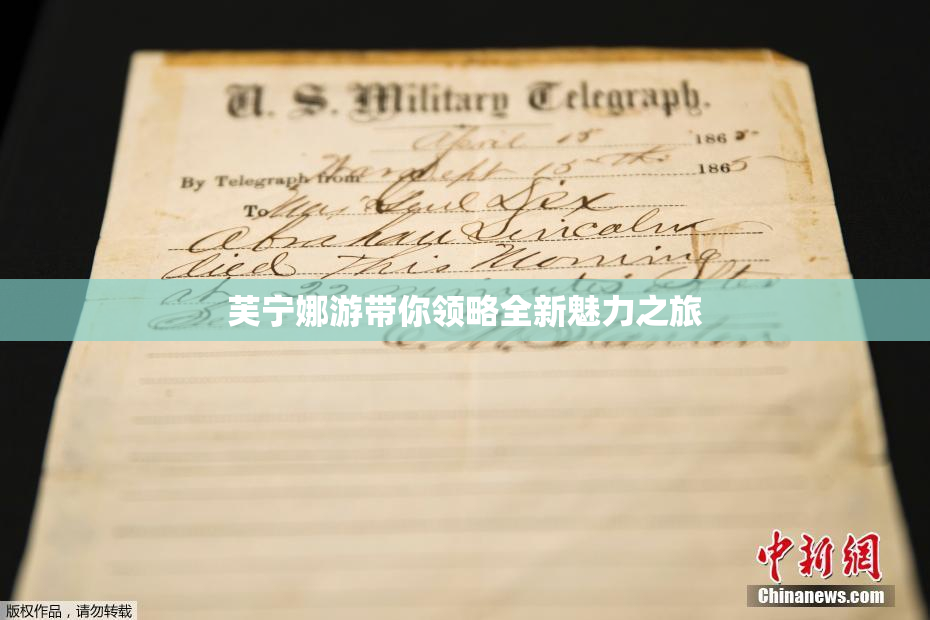 U. S. Military Telegraph.
April 15 1865
By Telegraph from War Dept 15th 1865
To Maj Genl Dix
Abraham Lincoln
died This Morning
at 22 minutes after
芙宁娜游带你领略全新魅力之旅
Stanton
中新网
Chinanews.com
版权作品，请勿转载